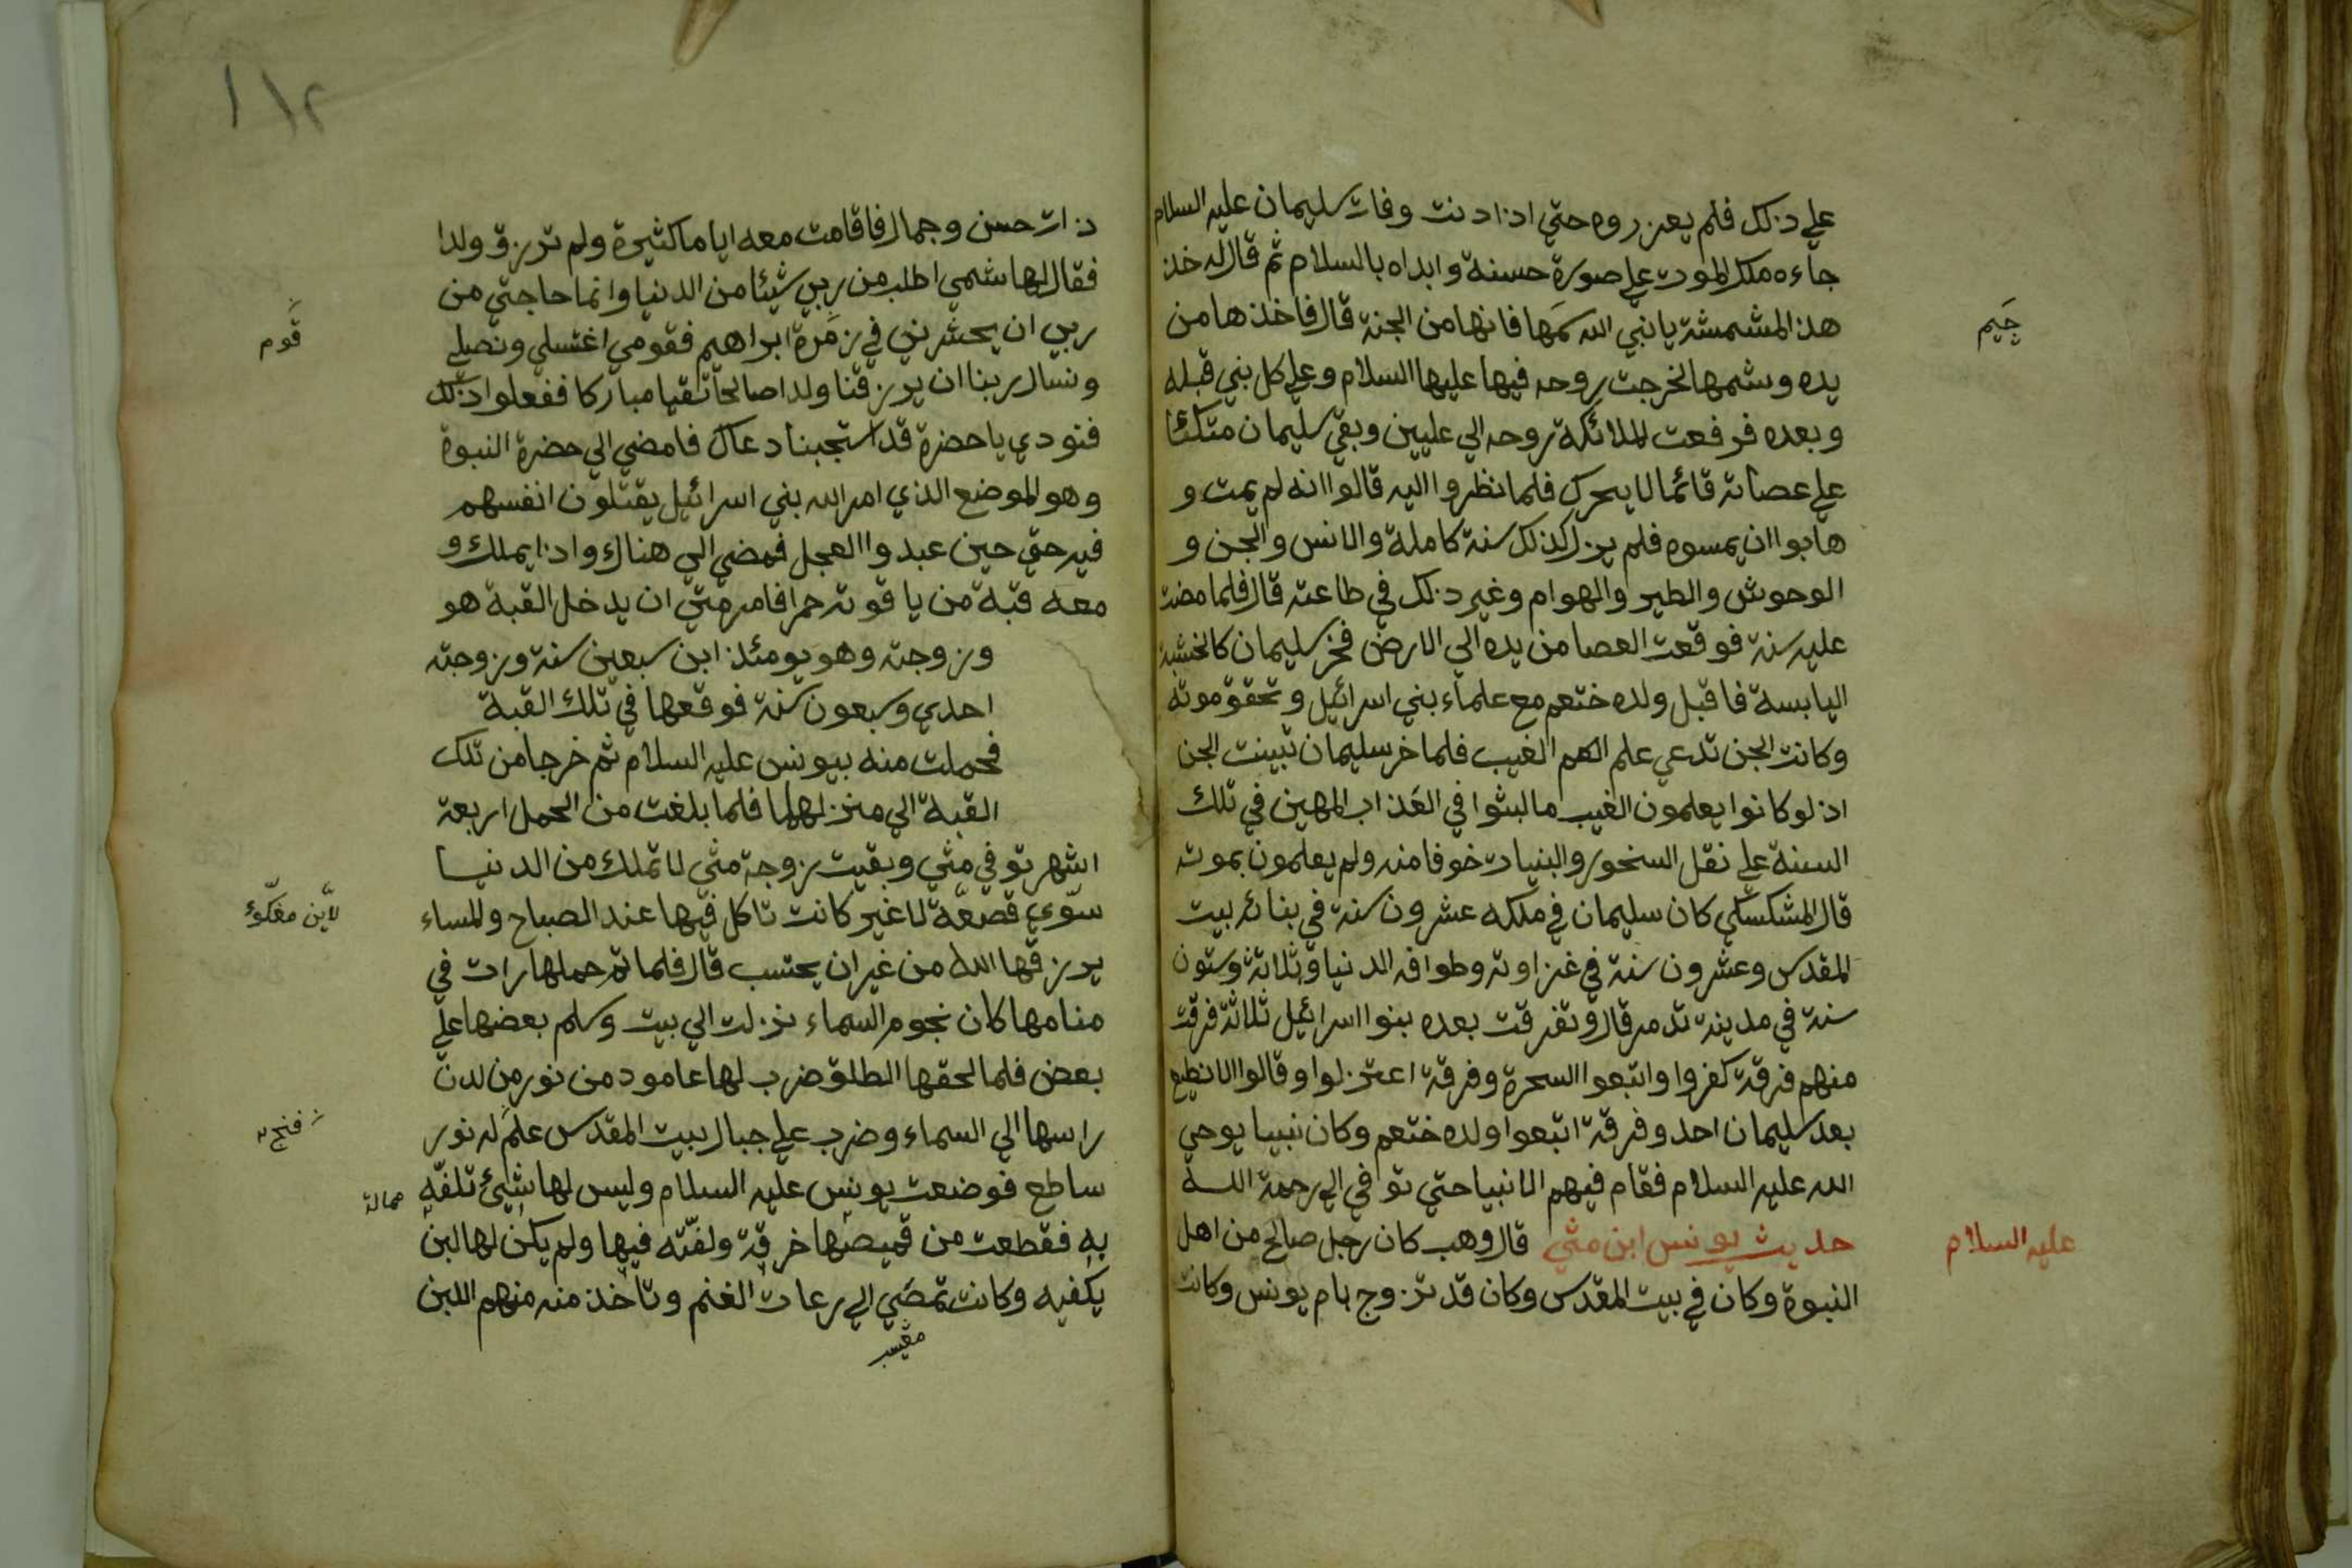 علي ذلك فلم يعزروه حتي اذا دنت وفات سليمان عليه السلام
جاءه ملك الموت علي صورة حسنة وابداه بالسلام ثم قال له خذ
هذ المشمشة يا نبي الله شمها فانها من الجنة قال فاخذها من
جيم
يده وشمها فخرجت روحه فيها عليها السلام وعلي كل بني قبله
وبعده فرفعت الملائكة روحه الي عليين وبقي سليمان متكئا
علي عصاته قائما لا يحرك فلما نظروا اليه قالوا انه لم يمت و
هابوا ان يمسوه فلم يزل كذلك سنة كاملة والانس والجن و
الوحوش والطير والهوام وغير ذلك في طاعته قال فلما مضت
عليه سنة فوقعت العصا من يده الي الارض فخر سليمان كالخشبة
اليابسة فاقبل ولده ختعم مع علماء بني اسرائيل وتحقق موته
وكانت الجن تدعي علم الهم الغيب فلما خر سليمان تبينت الجن
اذ لو كانوا يعلمون الغيب ما لبثوا في العذاب المهين في تلك
السنة علي نقل السخور والبنيات خوفا منه ولم يعلمون بموته
قال المشكسكي كان سليمان في ملكه عشرون سنة في بنائه بيت
المقدس وعشرون سنة في غزاوته وطوافه الدنيا وثلاثة وستون
سنة في مدينة تدمر قال وتفرقت بعده بنوا اسرائيل ثلاثة فرقة
منهم فرقة كفروا واتبعوا السحرة وفرقة اعتزلوا وقالوا لا نطيع
بعد سليمان احد وفرقة اتبعوا ولده ختعم وكان نبيا يوحي
الله عليه السلام فقام فيهم الانبيا حتي توافي الي رحمة اللــه
حديث يونس ابن متي قال وهب كان رجل صالح من اهل
عليه السلام
النبوة وكان في بيت المقدس وكان قد تزوج بام يونس وكانت
١١٢
ذات حسن وجمال فاقامت معه اياما كثيرة ولم ترزق ولدا
فقال لها شمي اطلب من ربي شيئا من الدنيا وانما حاجتي من
ربي ان يحشرني في زمرة ابراهيم فقومي اغتسلي ونصلي
قوم
ونسال ربنا ان يرزقنا ولدا صالحا تقيا مباركا ففعلوا ذلك
فنودي يا حضرة قد استجبنا دعاك فامضي الي حضرة النبوة
وهو الموضع الذي امر الله بني اسرائيل يقتلون انفسهم
فيه حق حين عبدوا العجل فمضي الي هناك واذا بملك و
معه قبة من ياقوته حمرا فامر متي ان يدخل القبة هو
وزوجته وهو يومئذ ابن سبعين سنة وزوجته
احدي وسبعون سنة فوقعها في تلك القبة
فحملت منه بيونس عليه السلام ثم خرجا من تلك
القبة الي منزلهما فلما بلغت من الحمل اربعة
اشهر توفي متي وبقيت زوجة متي لا تملك من الدنيا
سوي قصعة لا غير كانت تاكل فيها عند الصباح والمساء
يرزقها الله من غير ان يحتسب قال فلما تم حملها رات في
منامها كان نجوم السماء نزلت الي بيت وسلم بعضها علي
بعض فلما لحقها الطلق ضرب لها عامود من نور من لدن
راسها الي السماء وضرب علي جبال بيت المقدس علم له نور
ساطع فوضعت يونس عليه السلام وليس لها شيئ تلفه
به فقطعت من قميصها خرقة ولفته فيها ولم يكن لها لبن
يكفيه وكانت تمضي الي رعات الغنم وتاخذ منه منهم اللبن